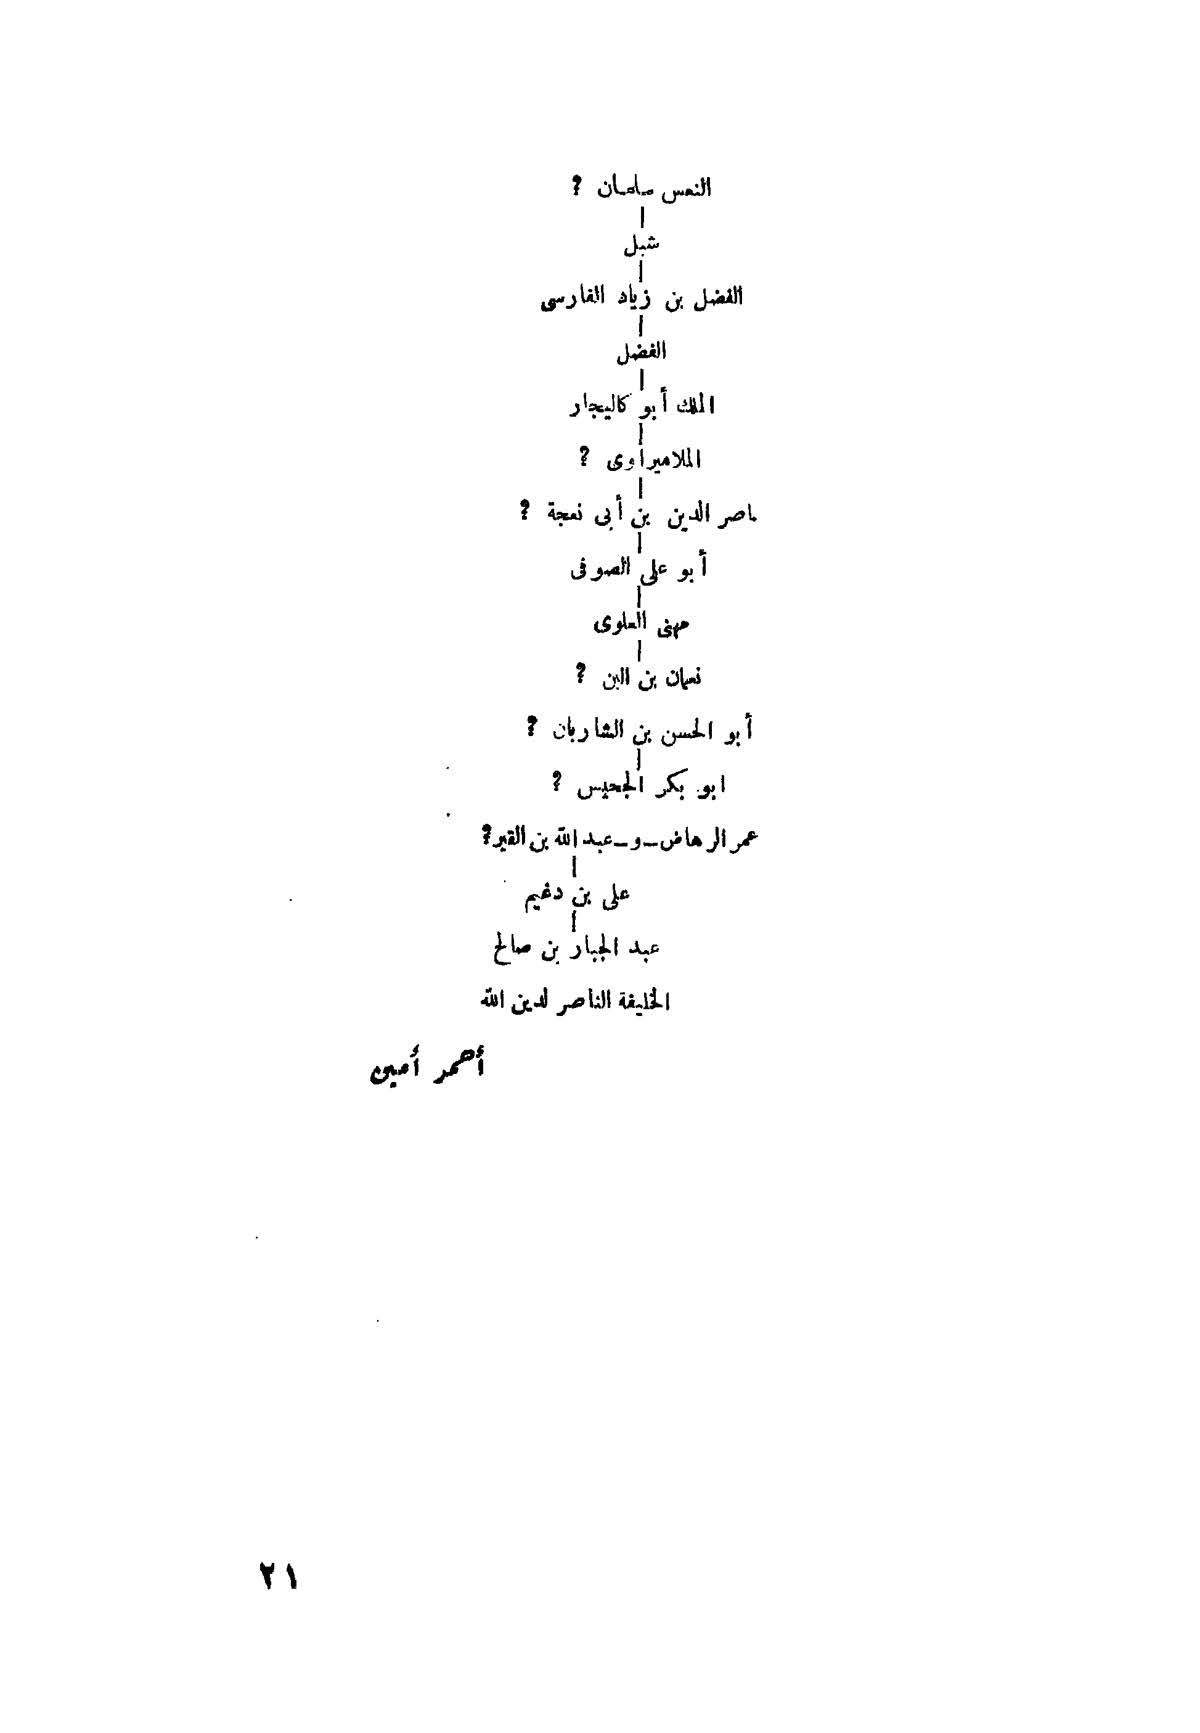 النعس سلمان ?
شبل
الفضل بن زياد الفارسى
الفضل
الملك أبو كاليجار
الملاميراوى ?
ناصر الدين بن أبى نعجة ?
أبو على الصوفى
مهنى العلوى
نعمان بن البن ?
أبو الحسن بن الشاربان ?
ابو بكر الجحيس ?
عمر الرهاض – و – عبد الله بن القير?
على بن دغيم
عبد الجبار بن صالح
الخليفة الناصر لدين الله
أحمد أمين
٢١